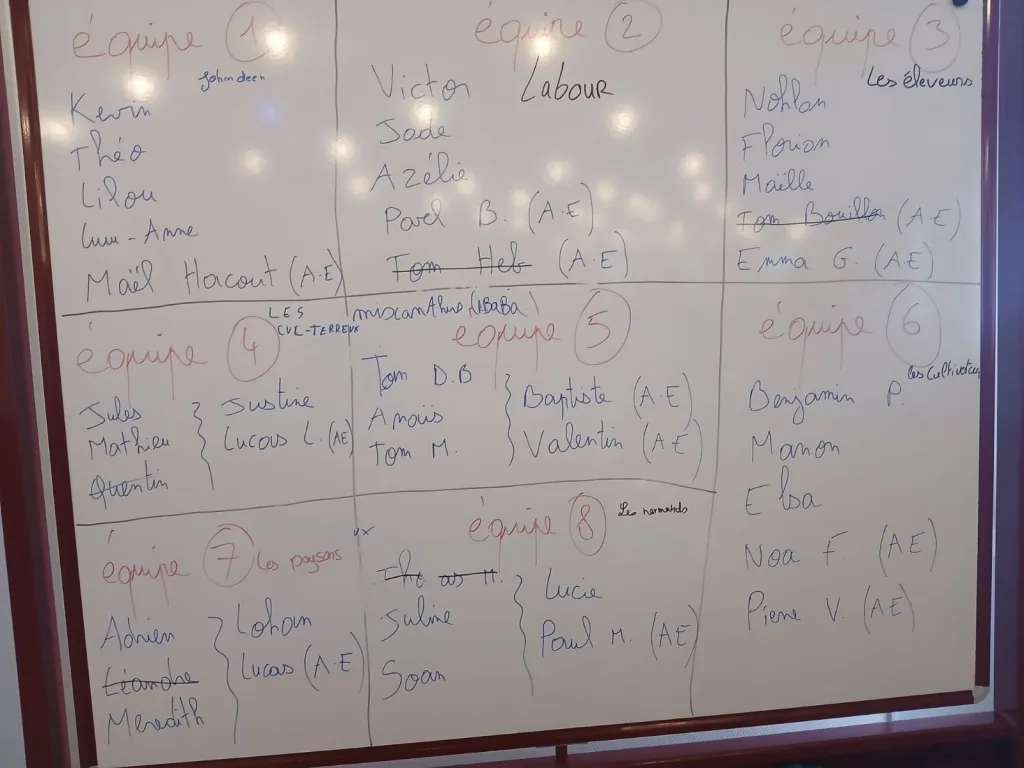 équipe 1
John deer
Kevin
Théo
Lilou
Lou-Anne
Maël Hacout (A.E)
équipe 2
Victor Labour
Jade
Azélie
Pavel B. (A.E)
Tom Heb (A.E)
équipe 3
Les éleveurs
Nohlan
Florian
Maëlle
Tom Bouillon (A.E)
Emma G. (AE)
équipe 4
LES
CUL-TERREUX
Jules
Mathieu
Quentin
Justine
Lucas L. (AE)
miscanthus (ABABA)
équipe 5
Tom D.B
Anaïs
Tom M.
Baptiste (A.E)
Valentin (AE)
équipe 6
les cultivateurs
Benjamin P.
Manon
Elsa
Noa F. (AE)
Pierre V. (AE)
équipe 7 Les paysans
Adrien
Léandre
Meredith
Lohan
Lucas (A.E)
équipe 8
Les normands
Thomas H.
Juline
Soan
Lucie
Paul M. (AE)